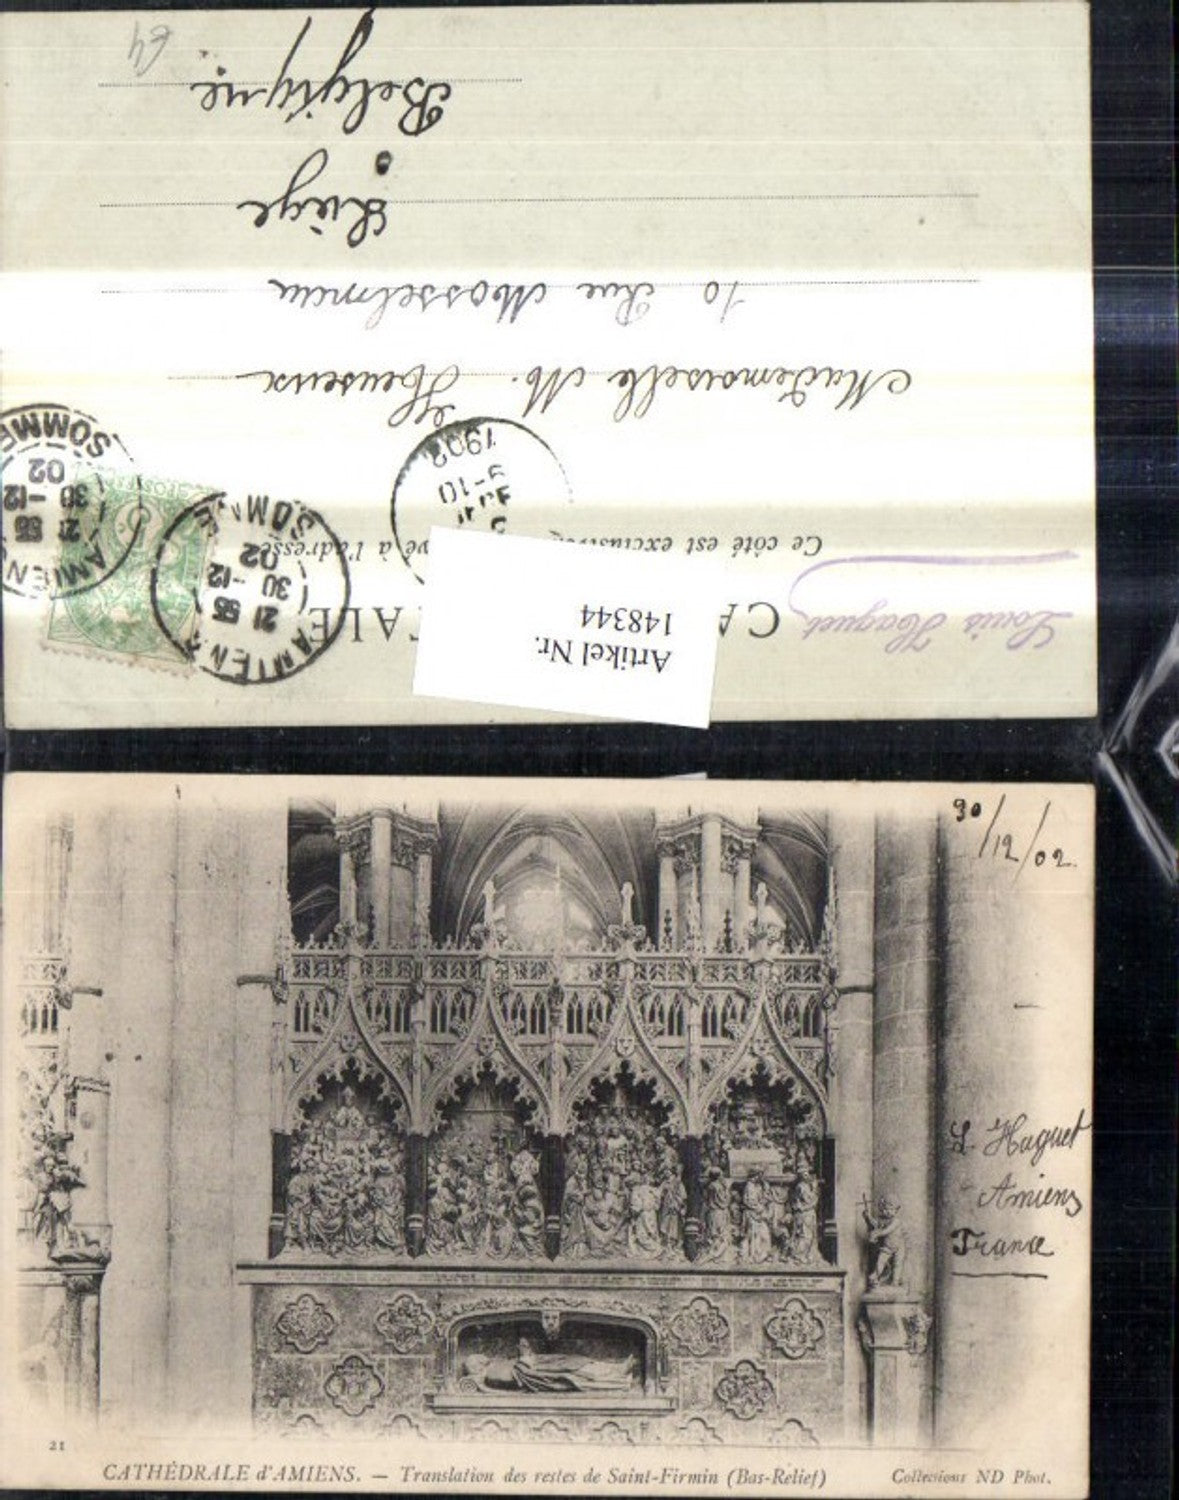 CA TALE
Ce côté est exclusiv vé à l'adresse
Louis Haguet
Artikel Nr.
148344
AMIENS
21 55
30 -12
02
SOMME
AMIENS
21 55
30 -12
02
SOMME
9-10
1902
Mademoiselle M. Heuseux
10 Rue Mosselman
Liège
Belgique
64
30/12/02.
L. Haguet
Amiens
France
21
CATHÉDRALE d'AMIENS. — Translation des restes de Saint-Firmin (Bas-Relief)
Collections ND Phot.